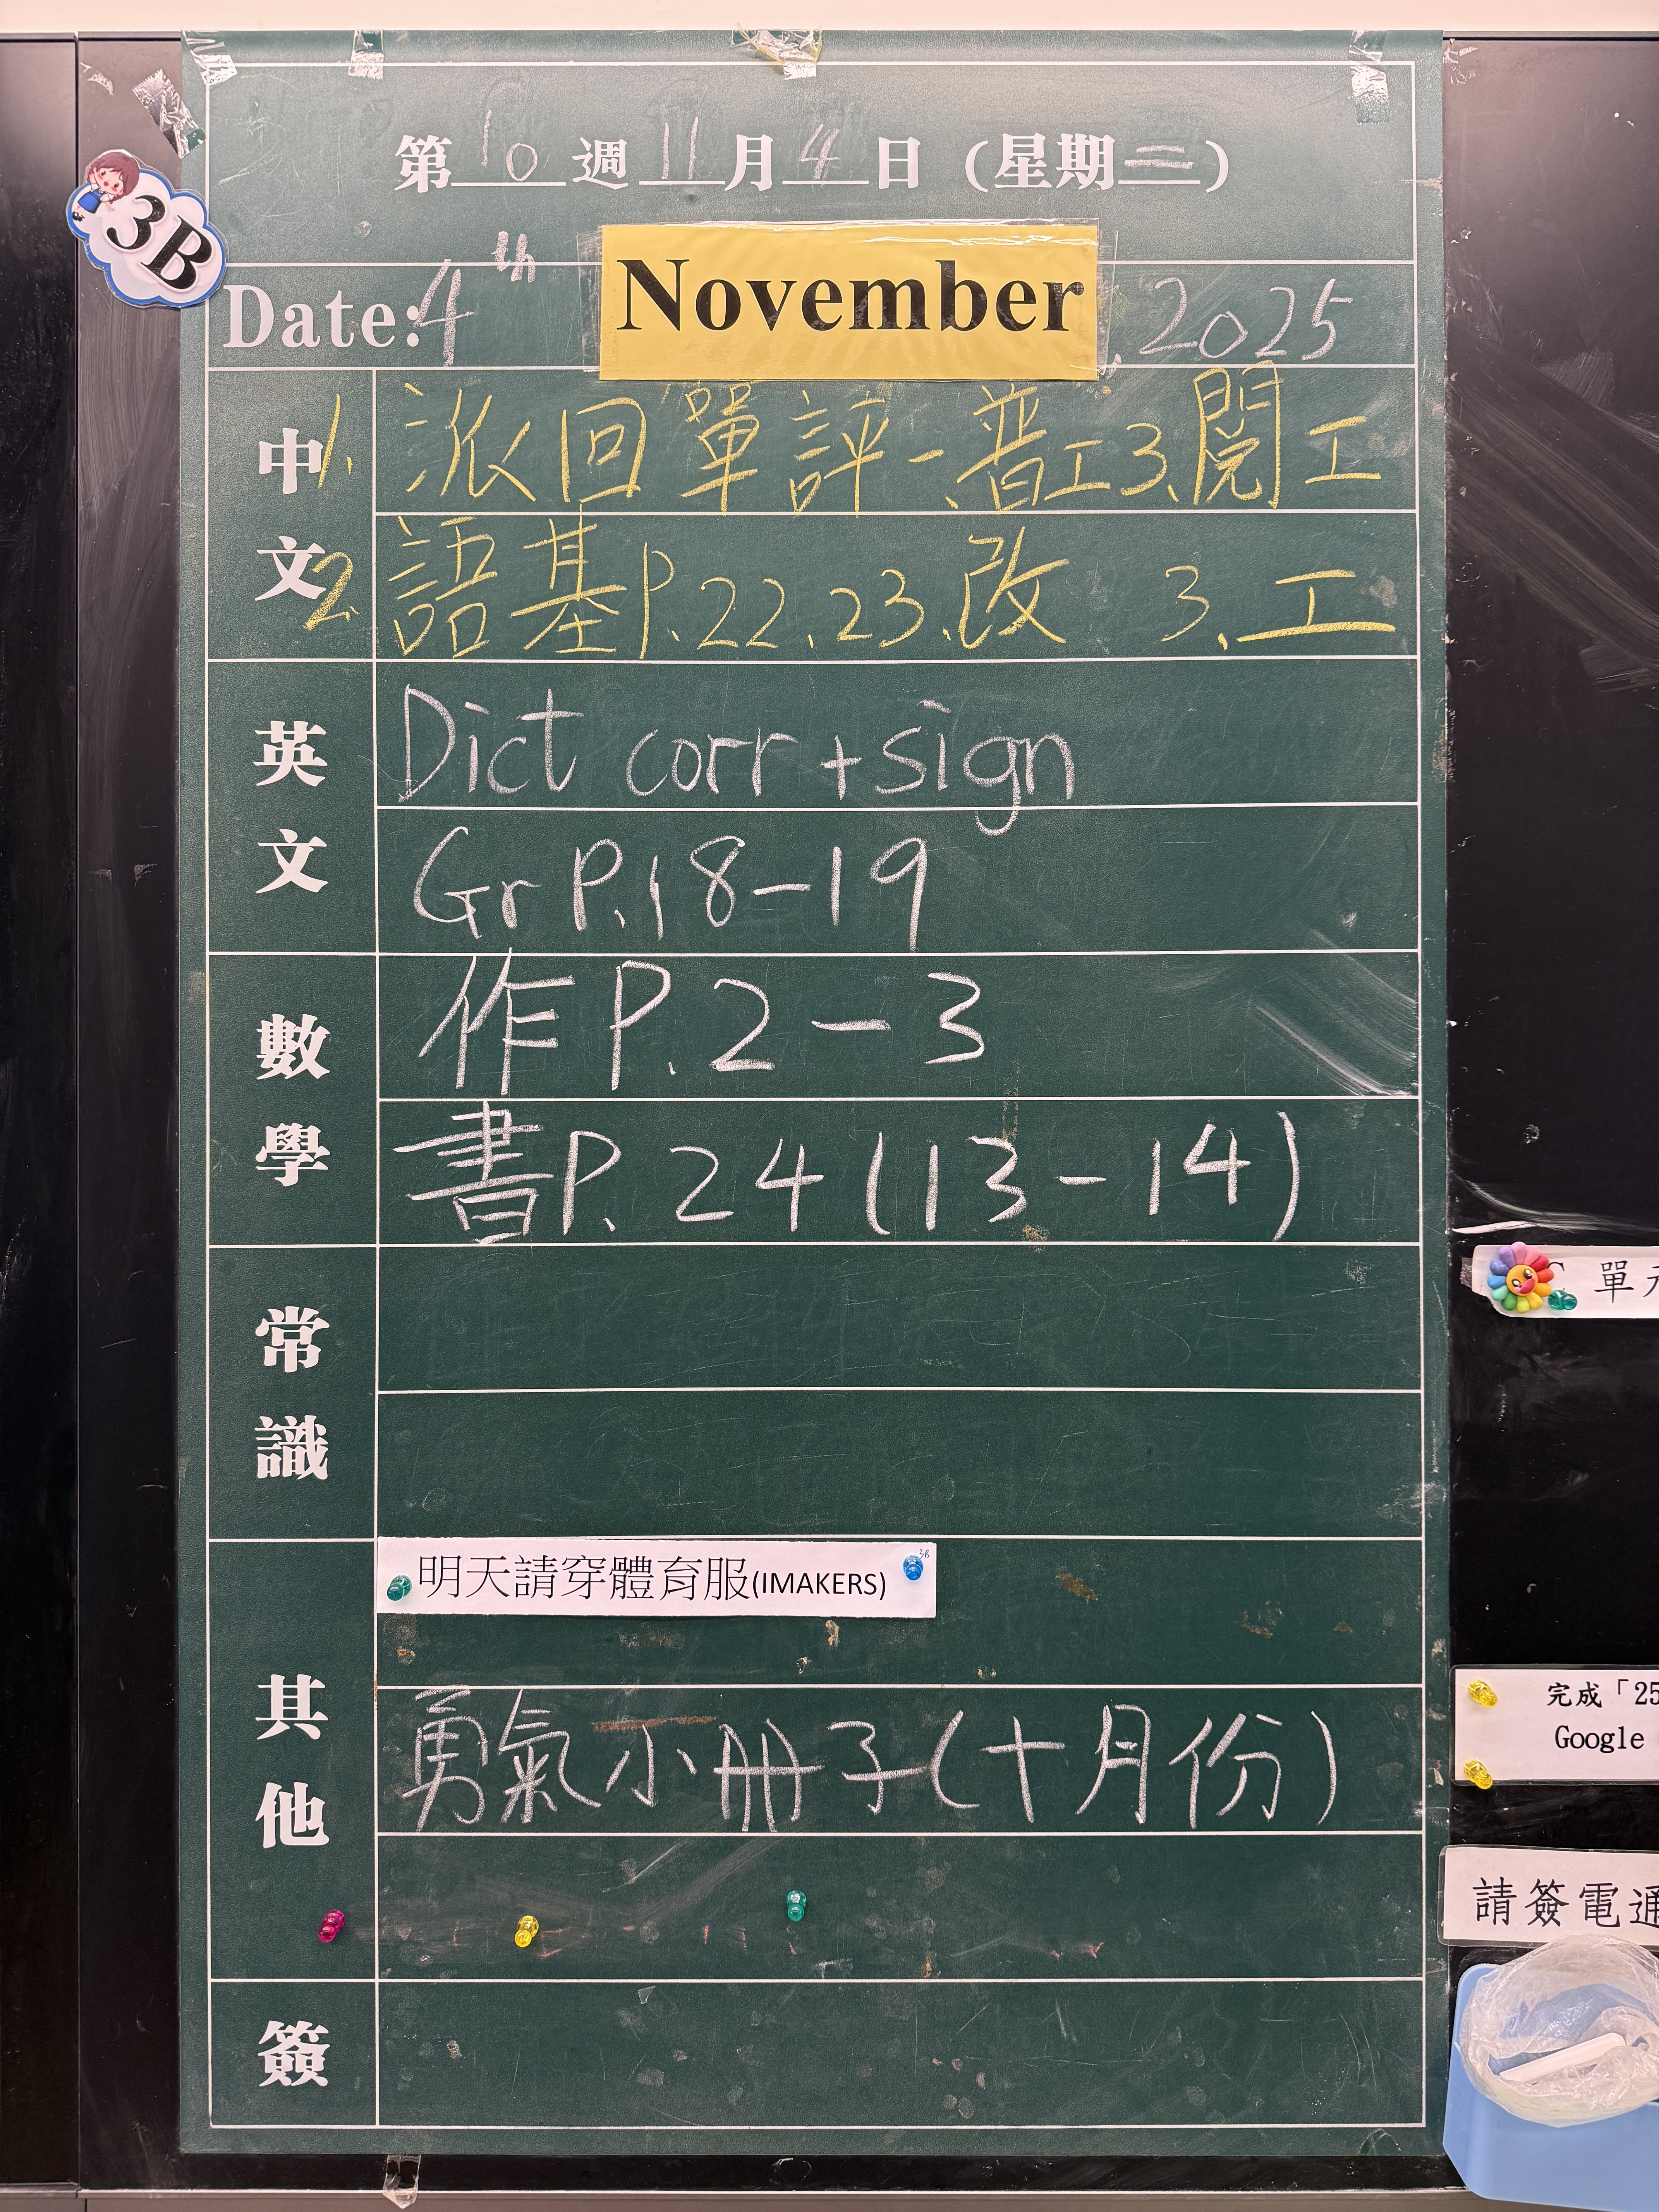 第10週11月4日(星期二)
3B
Date: 4th November, 2025
中文
1. 派回單評一、普工3、閱工
2. 語基P.22、23、改 3、工
英文
Dict corr + sign
Gr P.18-19
數學
作 P.2-3
書P.24(13-14)
常識
其他
明天請穿體育服(IMAKERS)
3B
勇氣小冊子(十月份)
簽
單元
完成「25
Google
請簽電通